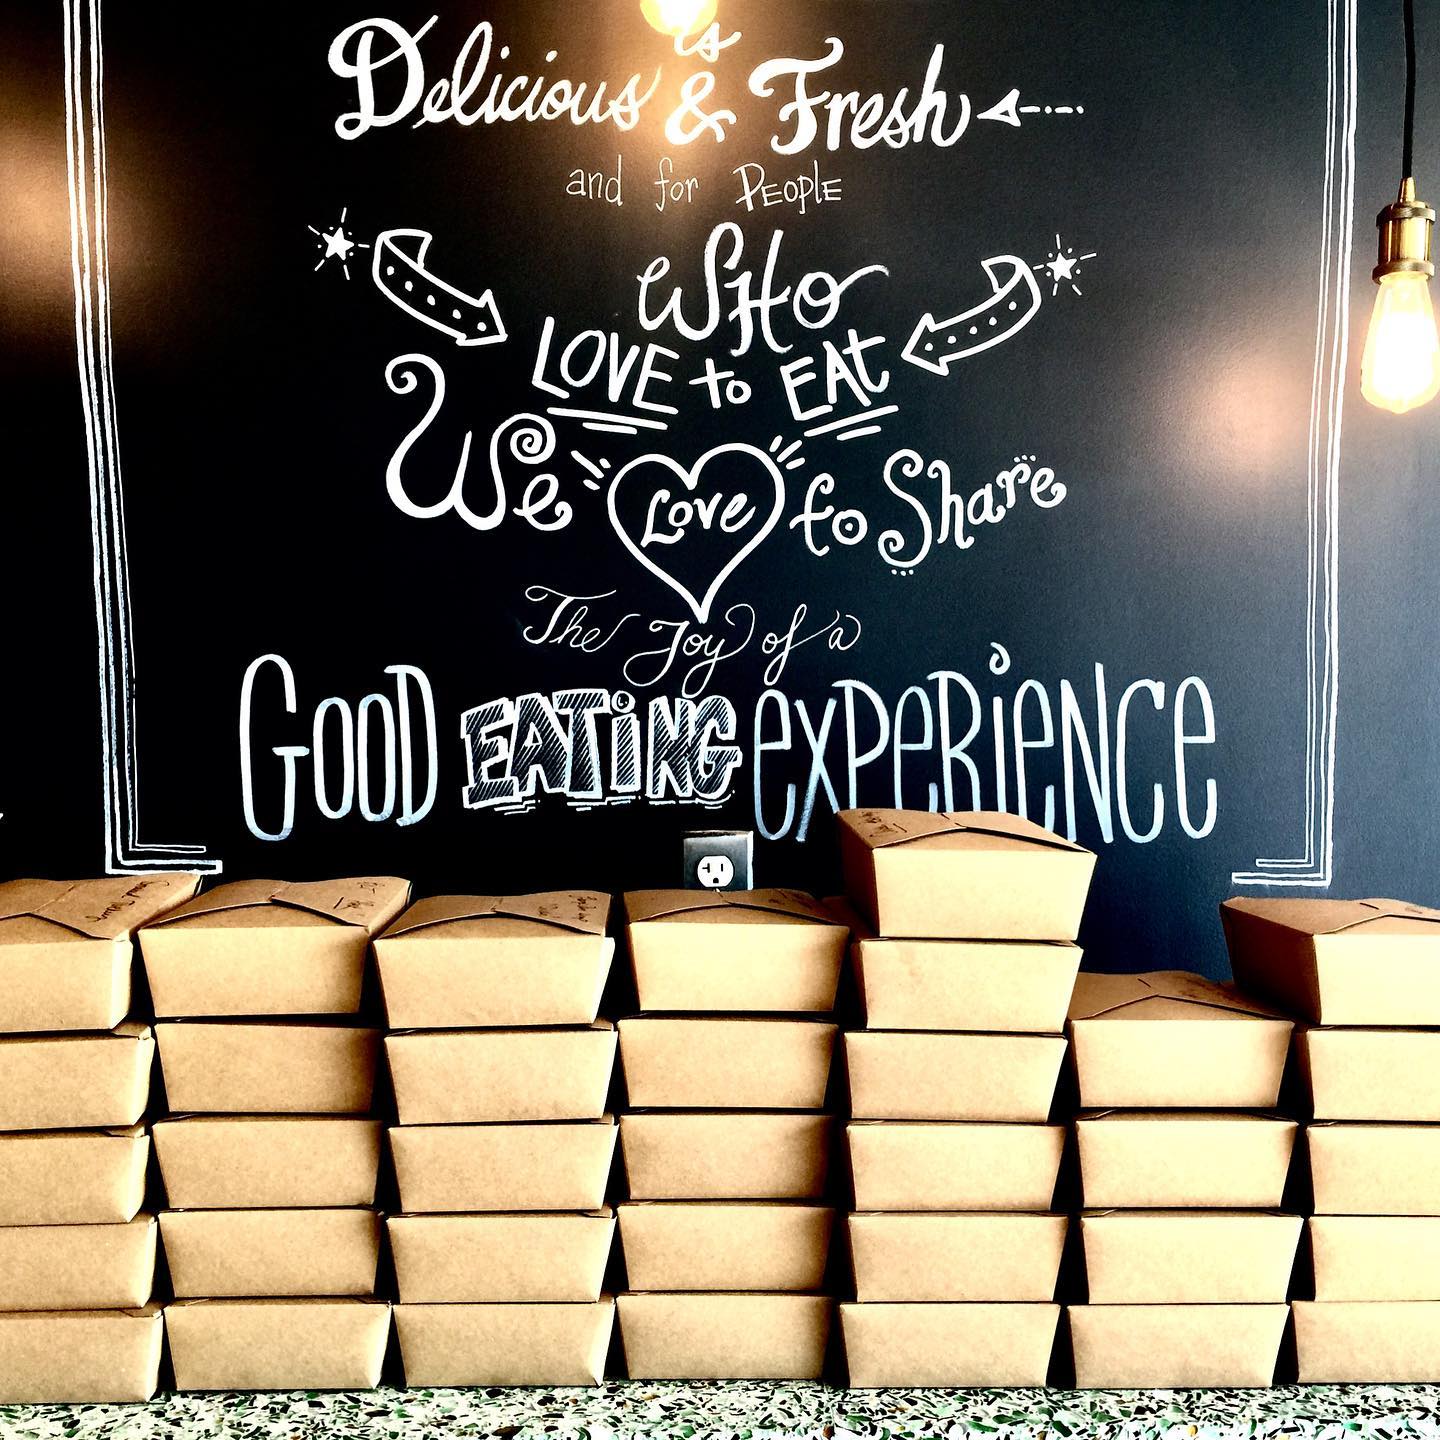 is
Delicious & Fresh
and for PEOPLE
WHO
LOVE to EAt
We Love to Share
The Joy of a
GOOD EATiNG experience